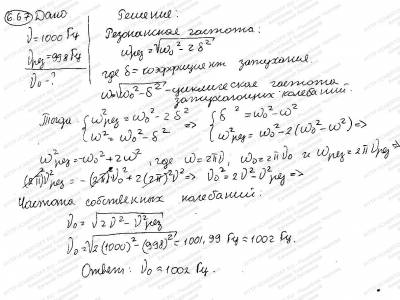 6.67 Дано
Решение:
ν = 1000 Гц
ν рез = 998 Гц
ν₀ - ?
Резонансная частота:
ω рез = √(ω₀² - 2δ²)
где δ = коэффициент затухания.
ω = √(ω₀² - δ²) - циклическая частота
затухающих колебаний.
Тогда { ω² рез = ω₀² - 2δ² => { δ² = ω₀² - ω²
{ ω² = ω₀² - δ² { ω² рез = ω₀² - 2(ω₀² - ω²) =>
ω² рез = -ω₀² + 2ω², где ω = 2πν, ω₀ = 2πν₀ и ω рез = 2πν рез =>
(2π)²ν² рез = -(2π)²ν₀² + 2(2π)²ν² => ν₀² = 2ν² - ν² рез =>
Частота собственных колебаний:
ν₀ = √(2ν² - ν² рез)
ν₀ = √(2(1000)² - (998)²) = 1001,99 Гц = 1002 Гц.
Ответ: ν₀ = 1002 Гц.